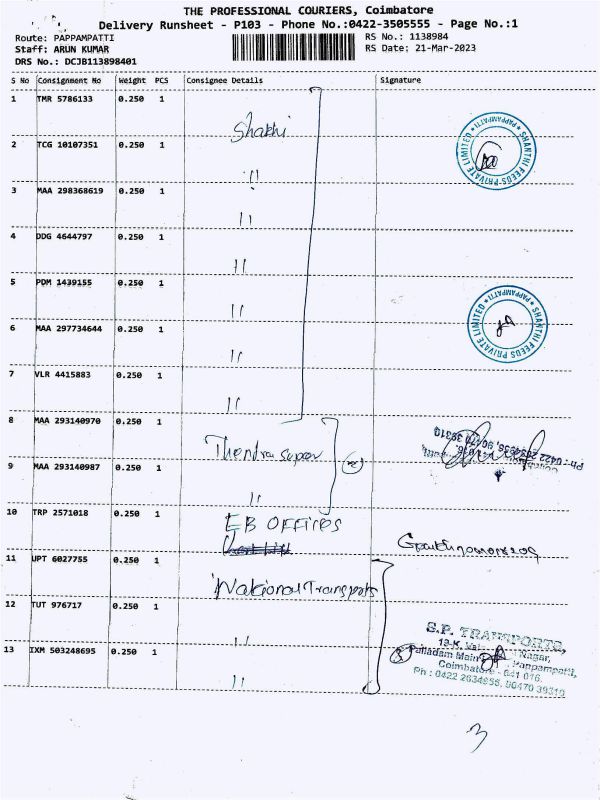 THE PROFESSIONAL COURIERS, Coimbatore
Delivery Runsheet - P103 - Phone No.:0422-3505555 - Page No.:1
Route: PAPPAMPATTI
Staff: ARUN KUMAR
DRS No.: DCJB113898401
RS No.: 1138984
RS Date: 21-Mar-2023
S No Consignment No Weight PCS Consignee Details Signature
1 TMR 5786133 0.250 1 Shakhi
SHANTHI FEEDS PRIVATE LIMITED PAPPAMPATTI
2 TCG 10107351 0.250 1 "
3 MAA 298368619 0.250 1 "
4 DDG 4644797 0.250 1 "
5 PDM 1439155 0.250 1 "
SHANTHI FEEDS PRIVATE LIMITED PAPPAMPATTI
6 MAA 297734644 0.250 1 "
7 VLR 4415883 0.250 1 "
8 MAA 293140970 0.250 1
Ph : 0422 2634956, 90470 39310
9 MAA 293140987 0.250 1 "
10 TRP 2571018 0.250 1 EB OFFICES
11 UPT 6027755 0.250 1 National Transports
12 TUT 976717 0.250 1 "
S.P. TRANSPORTS,
Nagar,
13 IXM 503248695 0.250 1 "
Palladam Main Pappampatti,
Coimbatore - 641 016.
Ph : 0422 2634956, 90470 39310
3